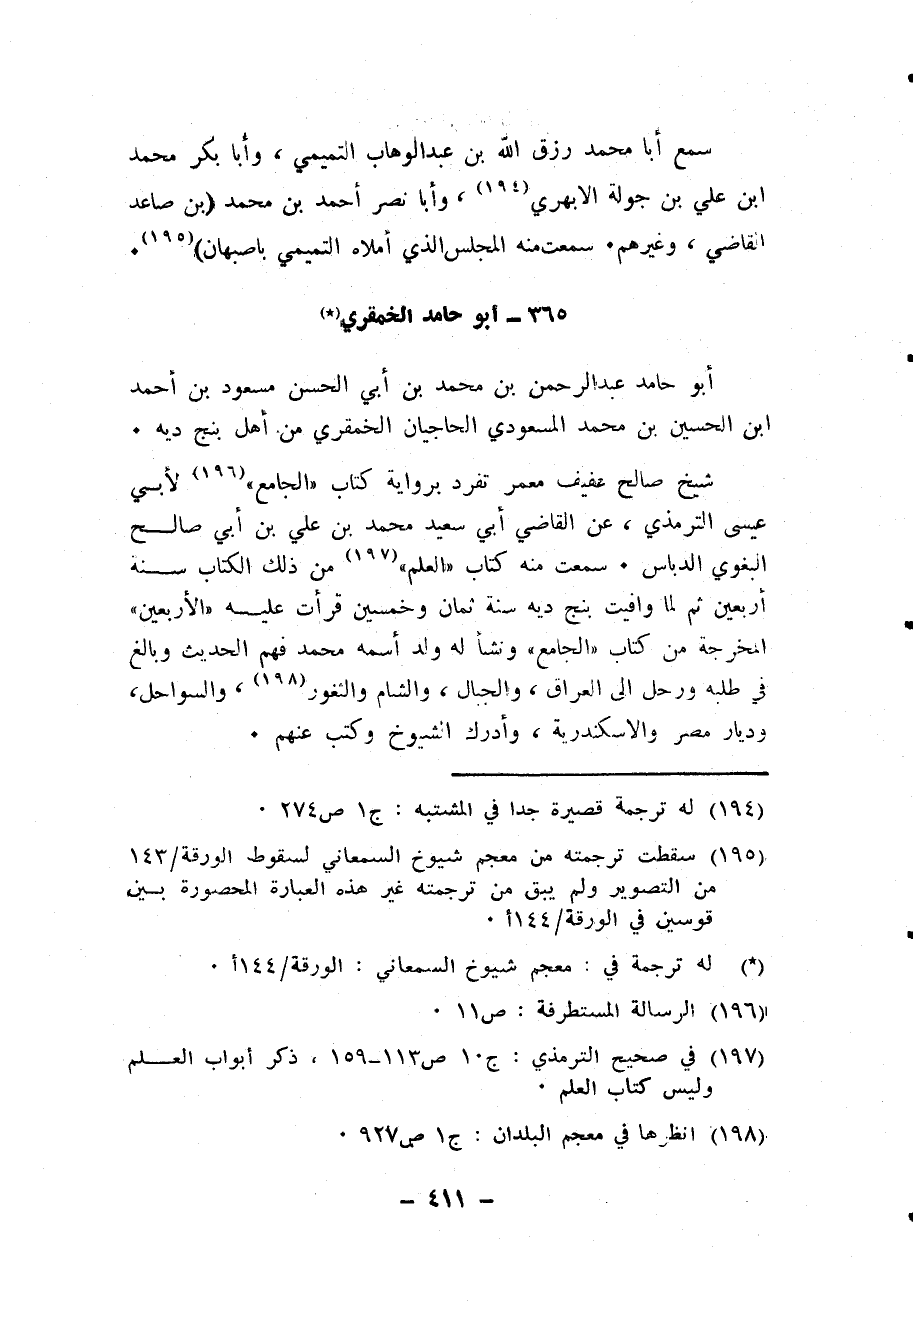 سمع أبا محمد رزق الله بن عبدالوهاب التميمي ، وأبا بكر محمد
ابن علي بن جولة الابهري(١٩٤) ، وأبا نصر أحمد بن محمد (بن صاعد
القاضي ، وغيرهم٠ سمعت منه المجلس الذي أملاه التميمي باصبهان)(١٩٥)٠
٣٦٥ ـ أبو حامد الخمقري(*)
أبو حامد عبدالرحمن بن محمد بن أبي الحسن مسعود بن أحمد
ابن الحسين بن محمد المسعودي الحاجيان الخمقري من أهل بنج ديه ٠
شيخ صالح عفيف معمر تفرد برواية كتاب «الجامع»(١٩٦) لأبـي
عيسى الترمذي ، عن القاضي أبي سعيد محمد بن علي بن أبي صالـــح
البغوي الدباس ٠ سمعت منه كتاب «العلم»(١٩٧) من ذلك الكتاب ســـنة
أربعين ثم لما وافيت بنج ديه سنة ثمان وخمسين قرأت عليـــه «الأربعين»
المخرجة من كتاب «الجامع» ونشأ له ولد أسمه محمد فهم الحديث وبالغ
في طلبه ورحل الى العراق ، والجبال ، والشام والثغور(١٩٨) ، والسواحل،
وديار مصر والاسكندرية ، وأدرك الشيوخ وكتب عنهم ٠
(١٩٤) له ترجمة قصيرة جدا في المشتبه : ج١ ص٢٧٤ ٠
(١٩٥) سقطت ترجمته من معجم شيوخ السمعاني لسقوط الورقة/١٤٣
من التصوير ولم يبق من ترجمته غير هذه العبارة المحصورة بـــين
قوسين في الورقة/١٤٤أ ٠
(*) له ترجمة في : معجم شيوخ السمعاني : الورقة/١٤٤أ ٠
(١٩٦) الرسالة المستطرفة : ص١١ ٠
(١٩٧) في صحيح الترمذي : ج١٠ ص١١٣ـ١٥٩ ، ذكر أبواب العـــلم
وليس كتاب العلم ٠
(١٩٨) انظرها في معجم البلدان : ج١ ص٩٢٧ ٠
ـ ٤١١ ـ